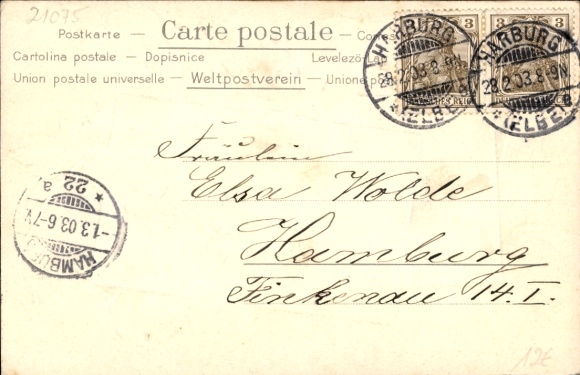 21075
Postkarte — Carte postale — Cor
Cartolina postale — Dopisnice Levelező-La
Union postale universelle — Weltpostverein — Unione po
3 3
HARBURG
28.2.03.8-9N
*(ELBE)a
HARBURG
28.2.03.8-9N
*(ELBE)a
Fräulein
Elsa Wolde
Hamburg
Finkenau 14. I.
HAMBURG
-1.3.03.6-7V.
* 22 a.
12€